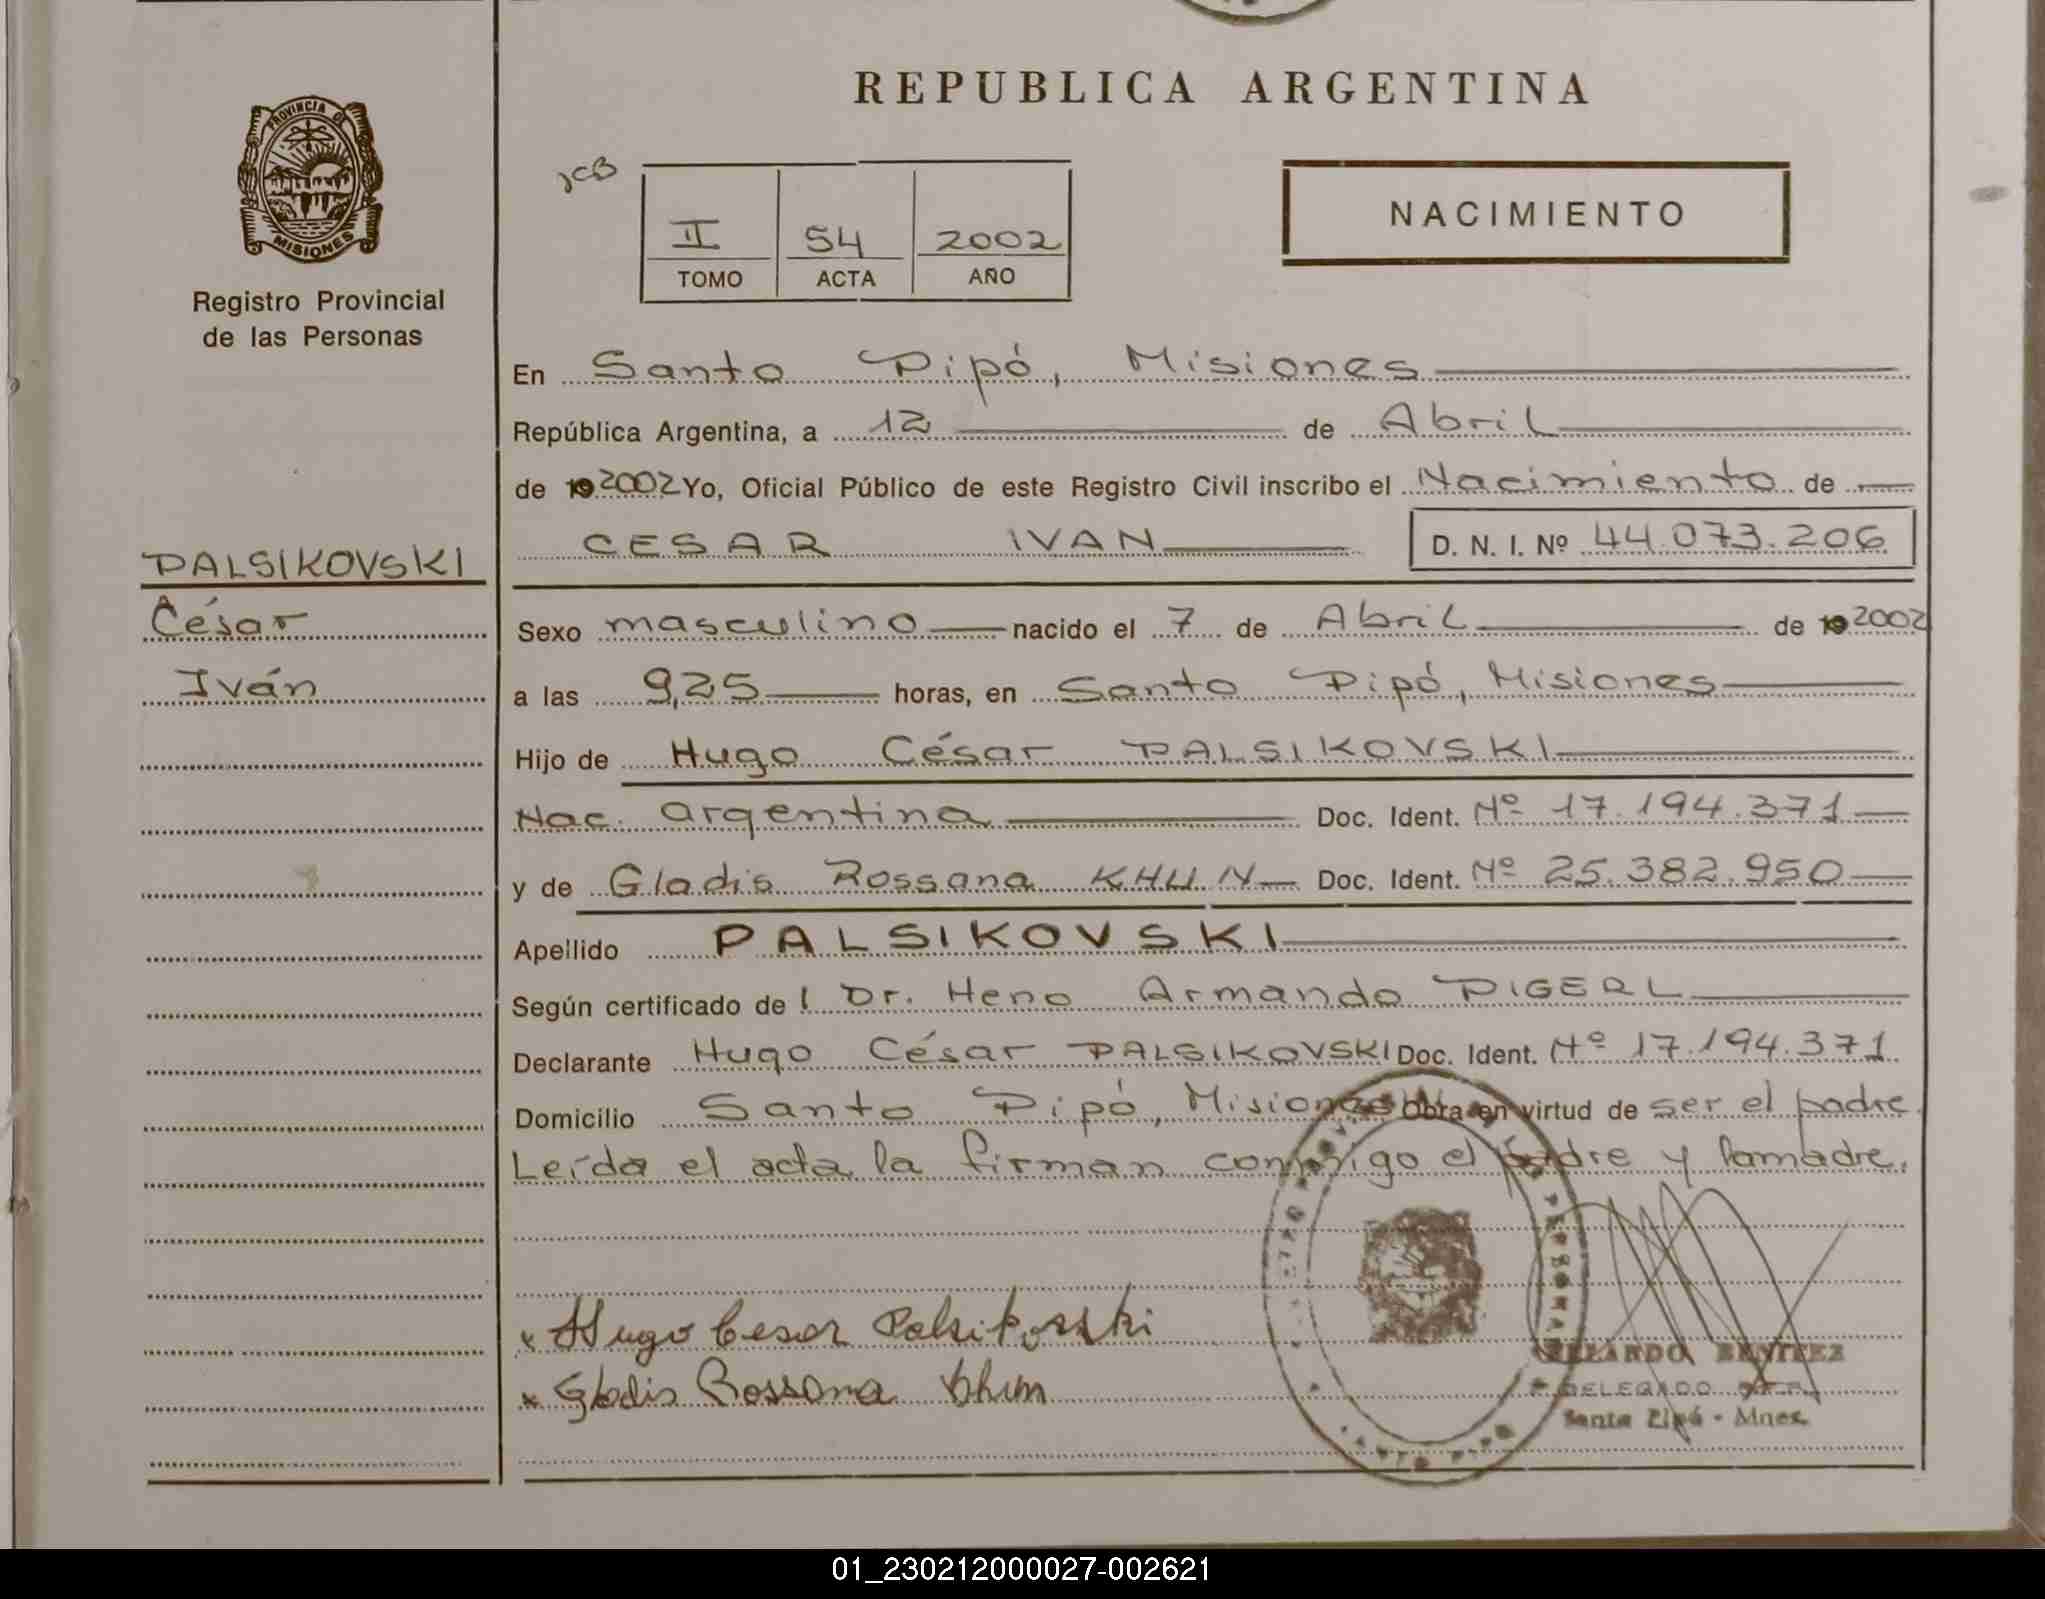 REPUBLICA ARGENTINA
PROVINCIA DE
MISIONES
Registro Provincial
de las Personas
JCB
II 54 2002
TOMO ACTA AÑO
NACIMIENTO
En Santo Pipó, Misiones
República Argentina, a 12 de Abril
de 19 2002 Yo, Oficial Público de este Registro Civil inscribo el Nacimiento de
CESAR IVAN D. N. I. Nº 44.073.206
PALSIKOVSKI
César
Iván
Sexo masculino nacido el 7 de Abril de 19 2002
a las 9,25 horas, en Santo Pipó, Misiones
Hijo de Hugo César PALSIKOVSKI
Nac. argentina Doc. Ident. Nº 17.194.371
y de Gladis Rossana KHUN Doc. Ident. Nº 25.382.950
Apellido PALSIKOVSKI
Según certificado de l Dr. Heno Armando PIGERL
Declarante Hugo César PALSIKOVSKI Doc. Ident. Nº 17.194.371
Domicilio Santo Pipó, Misiones Obra en virtud de ser el padre.
Leída el acta la firman conmigo el padre y la madre.
x Hugo Cesar Palsikovski
x Gladis Rossana Khun
BENITEZ
DELEGADO
Santo Pipó - Mnes.
01_230212000027-002621